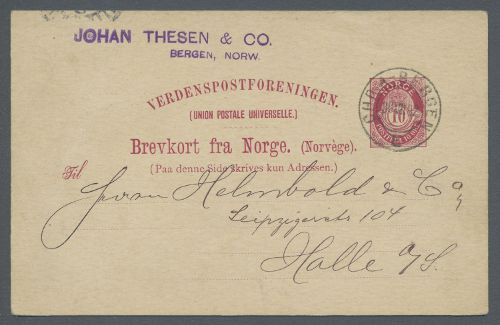 JOHAN THESEN & CO.
BERGEN, NORW.
VERDENSPOSTFORENINGEN.
(UNION POSTALE UNIVERSELLE.)
Brevkort fra Norge. (Norvège).
(Paa denne Side skrives kun Adressen.)
NORGE
10
BERGEN
Til
Herrn Helmbold & Co
Leipzigerstr 104
Halle a/S.